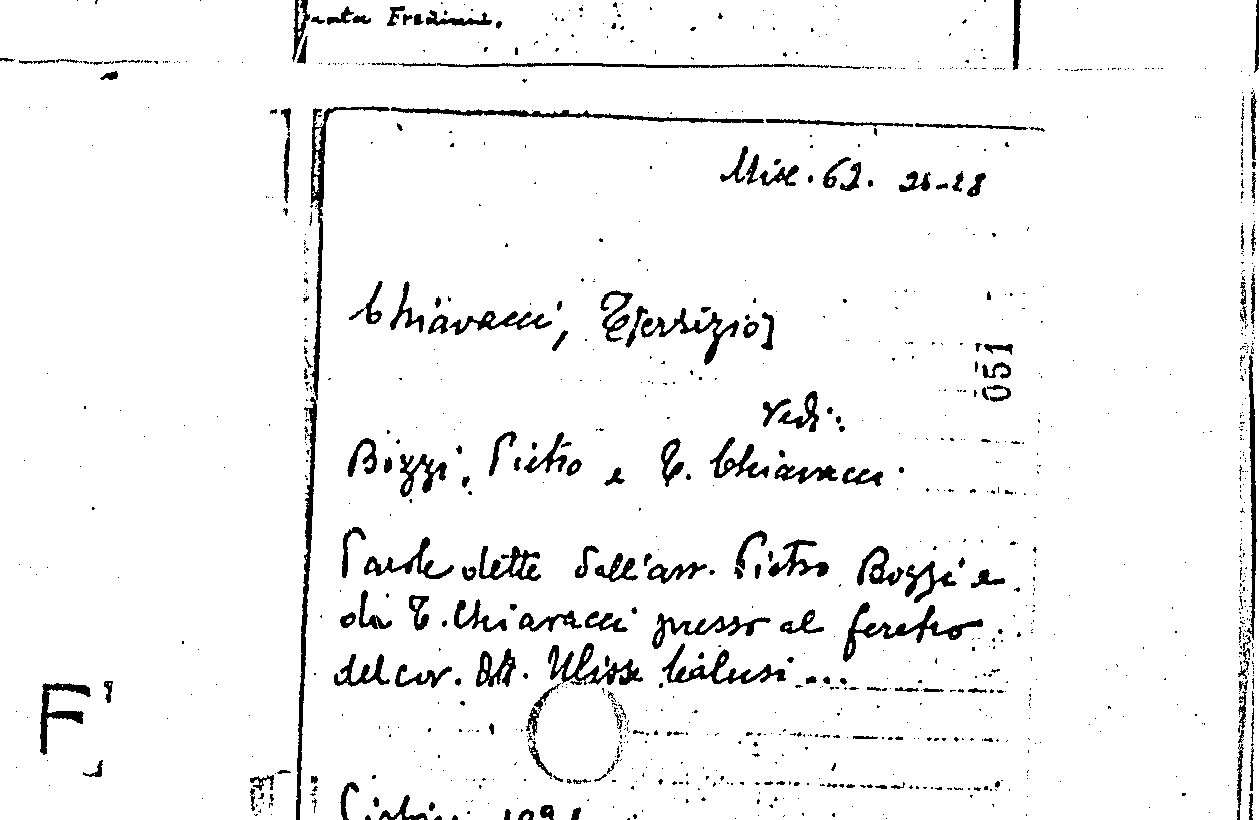 Misc. 62. 28-28
Chiavacci, T[ersizio]
051
vedi:
Bozzi, Pietro e T. Chiavacci.
Parole dette dall'avv. Pietro Bozzi e
da T. Chiavacci presso al feretro
del cav. Dott. Ulisse Cialusi...
F